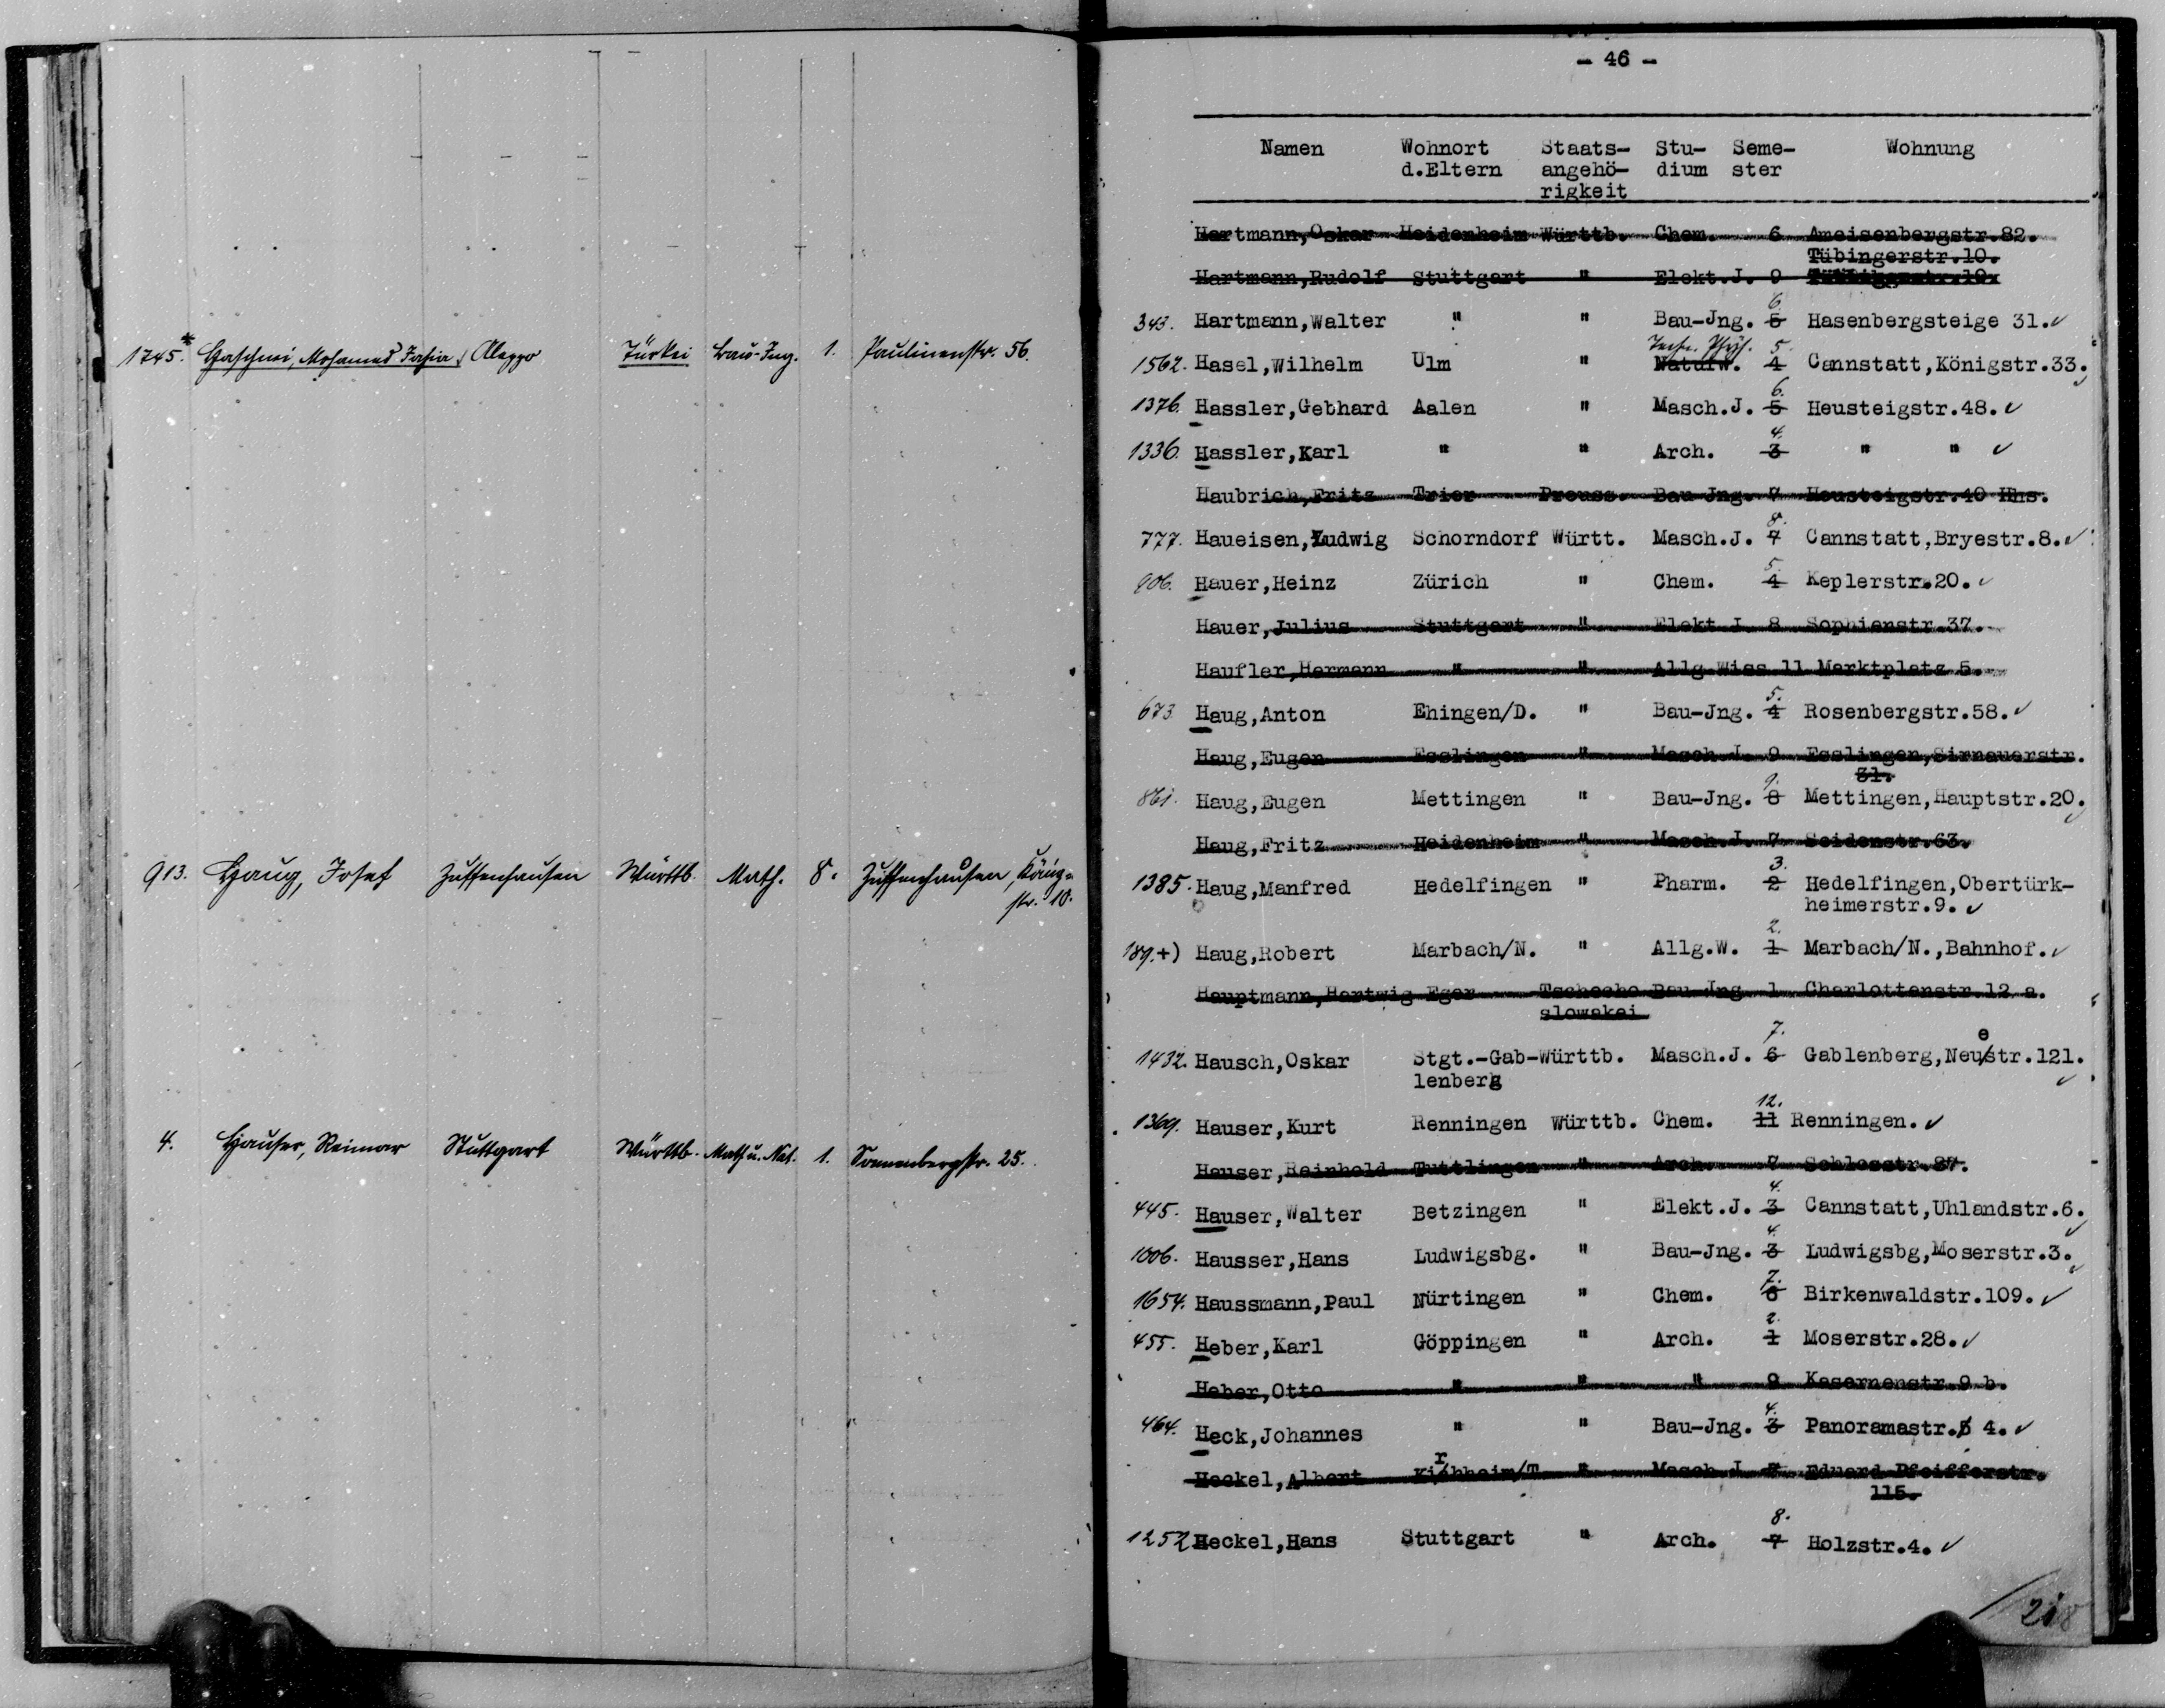 1745.* Haschmi, Mohamed Jahia Aleppo Türkei Bau-Ing. 1. Paulinenstr. 56.
913. Haug, Josef Zuffenhausen Württb. Math. 8. Zuffenhausen,
str. 10.
4. Hauser, Reimar Stuttgart Württb. Math u. Nat. 1. Sonnenbergstr. 25.
- 46 -
Namen Wohnort Staats- Stu- Seme- Wohnung
d.Eltern angehö- dium ster
rigkeit
Hartmann,Oskar Heidenheim Württb. Chem. 6 Ameisenbergstr.82.
Tübingerstr.10.
Hartmann,Rudolf Stuttgart " Elekt.J. 9
6.
343. Hartmann,Walter " " Bau-Jng. 5 Hasenbergsteige 31. ✓
Techn. Phys. 5.
1562. Hasel,Wilhelm Ulm " Naturw. 4 Cannstatt,Königstr.33. ✓
6.
1376. Hassler,Gebhard Aalen " Masch.J. 5 Heusteigstr.48. ✓
4.
1336. Hassler,Karl " " Arch. 3 " " ✓
Haubrich,Fritz Trier Preuss. Bau-Jng. 7 Heusteigstr.40 Hhs.
8.
777. Haueisen,Ludwig Schorndorf Württ. Masch.J. 7 Cannstatt,Bryestr.8. ✓
5.
906. Hauer,Heinz Zürich " Chem. 4 Keplerstr.20. ✓
Hauer,Julius Stuttgart " Elekt.J. 8 Sophienstr.37.
Haufler,Hermann " " Allg.Wiss 11 Marktplatz 5.
5.
673. Haug,Anton Ehingen/D. " Bau-Jng. 4 Rosenbergstr.58. ✓
Haug,Eugen Esslingen " Masch.J. 9 Esslingen,Sirnauerstr.
31.
9.
861. Haug,Eugen Mettingen " Bau-Jng. 8 Mettingen,Hauptstr.20. ✓
Haug,Fritz Heidenheim " Masch.J. 7 Seidenstr.63.
3.
1385. Haug,Manfred Hedelfingen " Pharm. 2 Hedelfingen,Obertürk-
heimerstr.9. ✓
2.
189.+) Haug,Robert Marbach/N. " Allg.W. 1 Marbach/N.,Bahnhof. ✓
Hauptmann,Hartwig Eger Tschecho Bau-Jng 1 Charlottenstr.12 a.
slowakei
7. e
1432. Hausch,Oskar Stgt.-Gab-Württb. Masch.J. 6 Gablenberg,Neustr.121.
lenberg ✓
12.
1369. Hauser,Kurt Renningen Württb. Chem. 11 Renningen. ✓
Hauser,Reinhold Tuttlingen " Arch. 7 Schlosstr.87.
4.
445. Hauser,Walter Betzingen " Elekt.J. 3 Cannstatt,Uhlandstr.6. ✓
4.
1006. Hausser,Hans Ludwigsbg. " Bau-Jng. 3 Ludwigsbg,Moserstr.3. ✓
7.
1654. Haussmann,Paul Nürtingen " Chem. 6 Birkenwaldstr.109. ✓
2.
455. Heber,Karl Göppingen " Arch. 1 Moserstr.28. ✓
Heber,Otto " " " 9 Kasernenstr.9 b.
4.
464. Heck,Johannes " " Bau-Jng. 3 Panoramastr.5 4. ✓
r
Heckel,Albert Kichheim/T " Masch.J. 7 Eduard Pfeifferstr.
115.
8.
1252 Heckel,Hans Stuttgart " Arch. 7 Holzstr.4. ✓